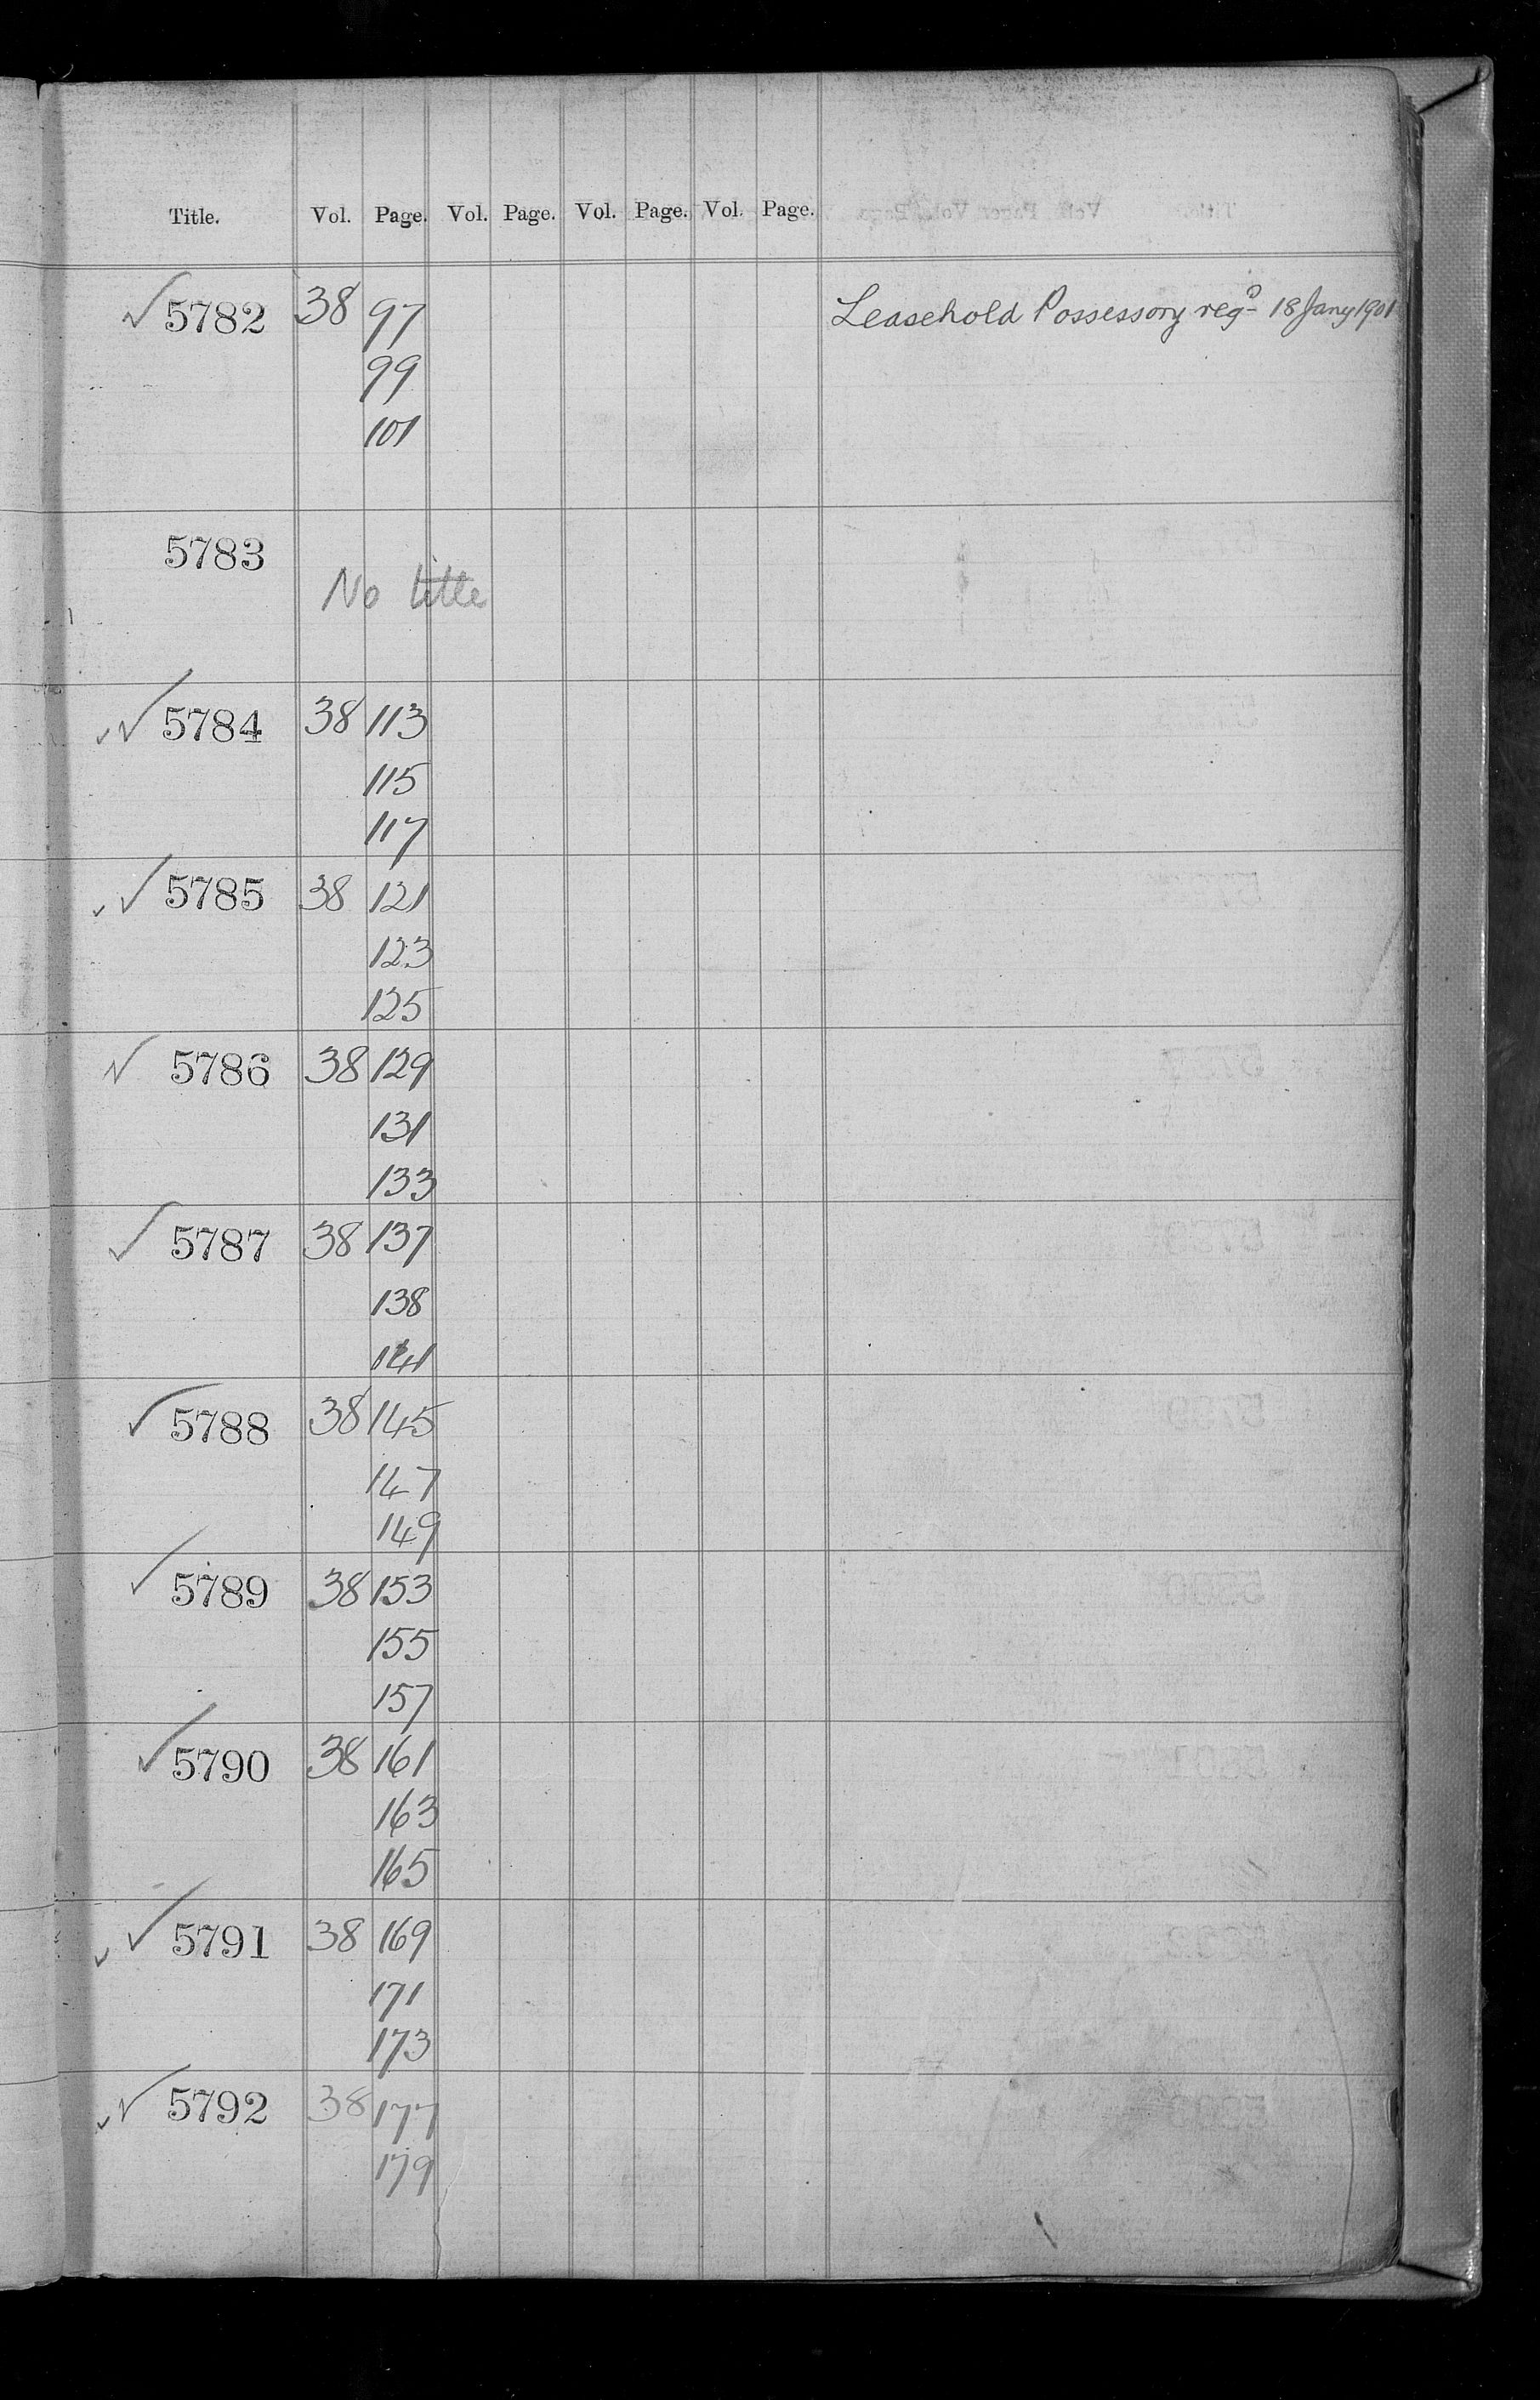 Title. Vol. Page. Vol. Page. Vol. Page. Vol. Page.
✓ 5782 38 97 Leasehold Possessory regd 18 Jany 1901
99
101
5783
No title
✓✓ 5784 38 113
115
117
✓✓ 5785 38 121
123
125
✓ 5786 38 129
131
133
✓ 5787 38 137
138
141
✓ 5788 38 145
147
149
✓ 5789 38 153
155
157
✓ 5790 38 161
163
165
✓✓ 5791 38 169
171
173
✓✓ 5792 38 177
179